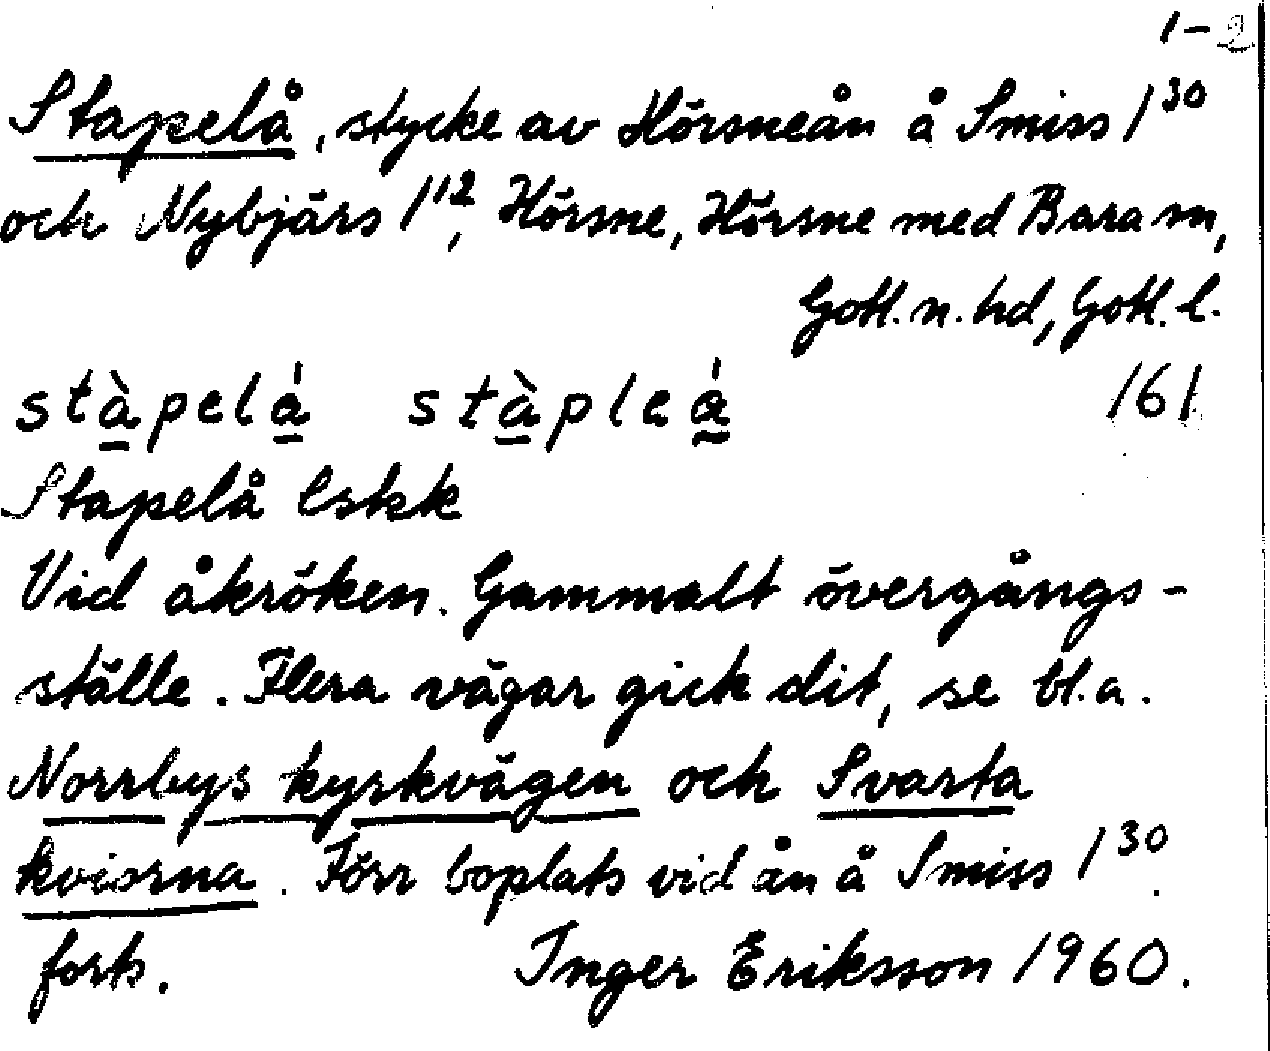 1-2
Stapelå, stycke av Hörsneån å Smiss 1³⁰
och Nybjärs 1¹², Hörsne, Hörsne med Bara sn,
Gotl. n. hd, Gotl. l.
stàpelá stàpleá
161
Stapelå lskk
Vid åkröken. Gammalt övergångs-
ställe. Flera vägar gick dit, se bl.a.
Norrbys kyrkvägen och Svarta
kviorna. Förr boplats vid ån å Smiss 1³⁰.
forts. Inger Eriksson 1960.